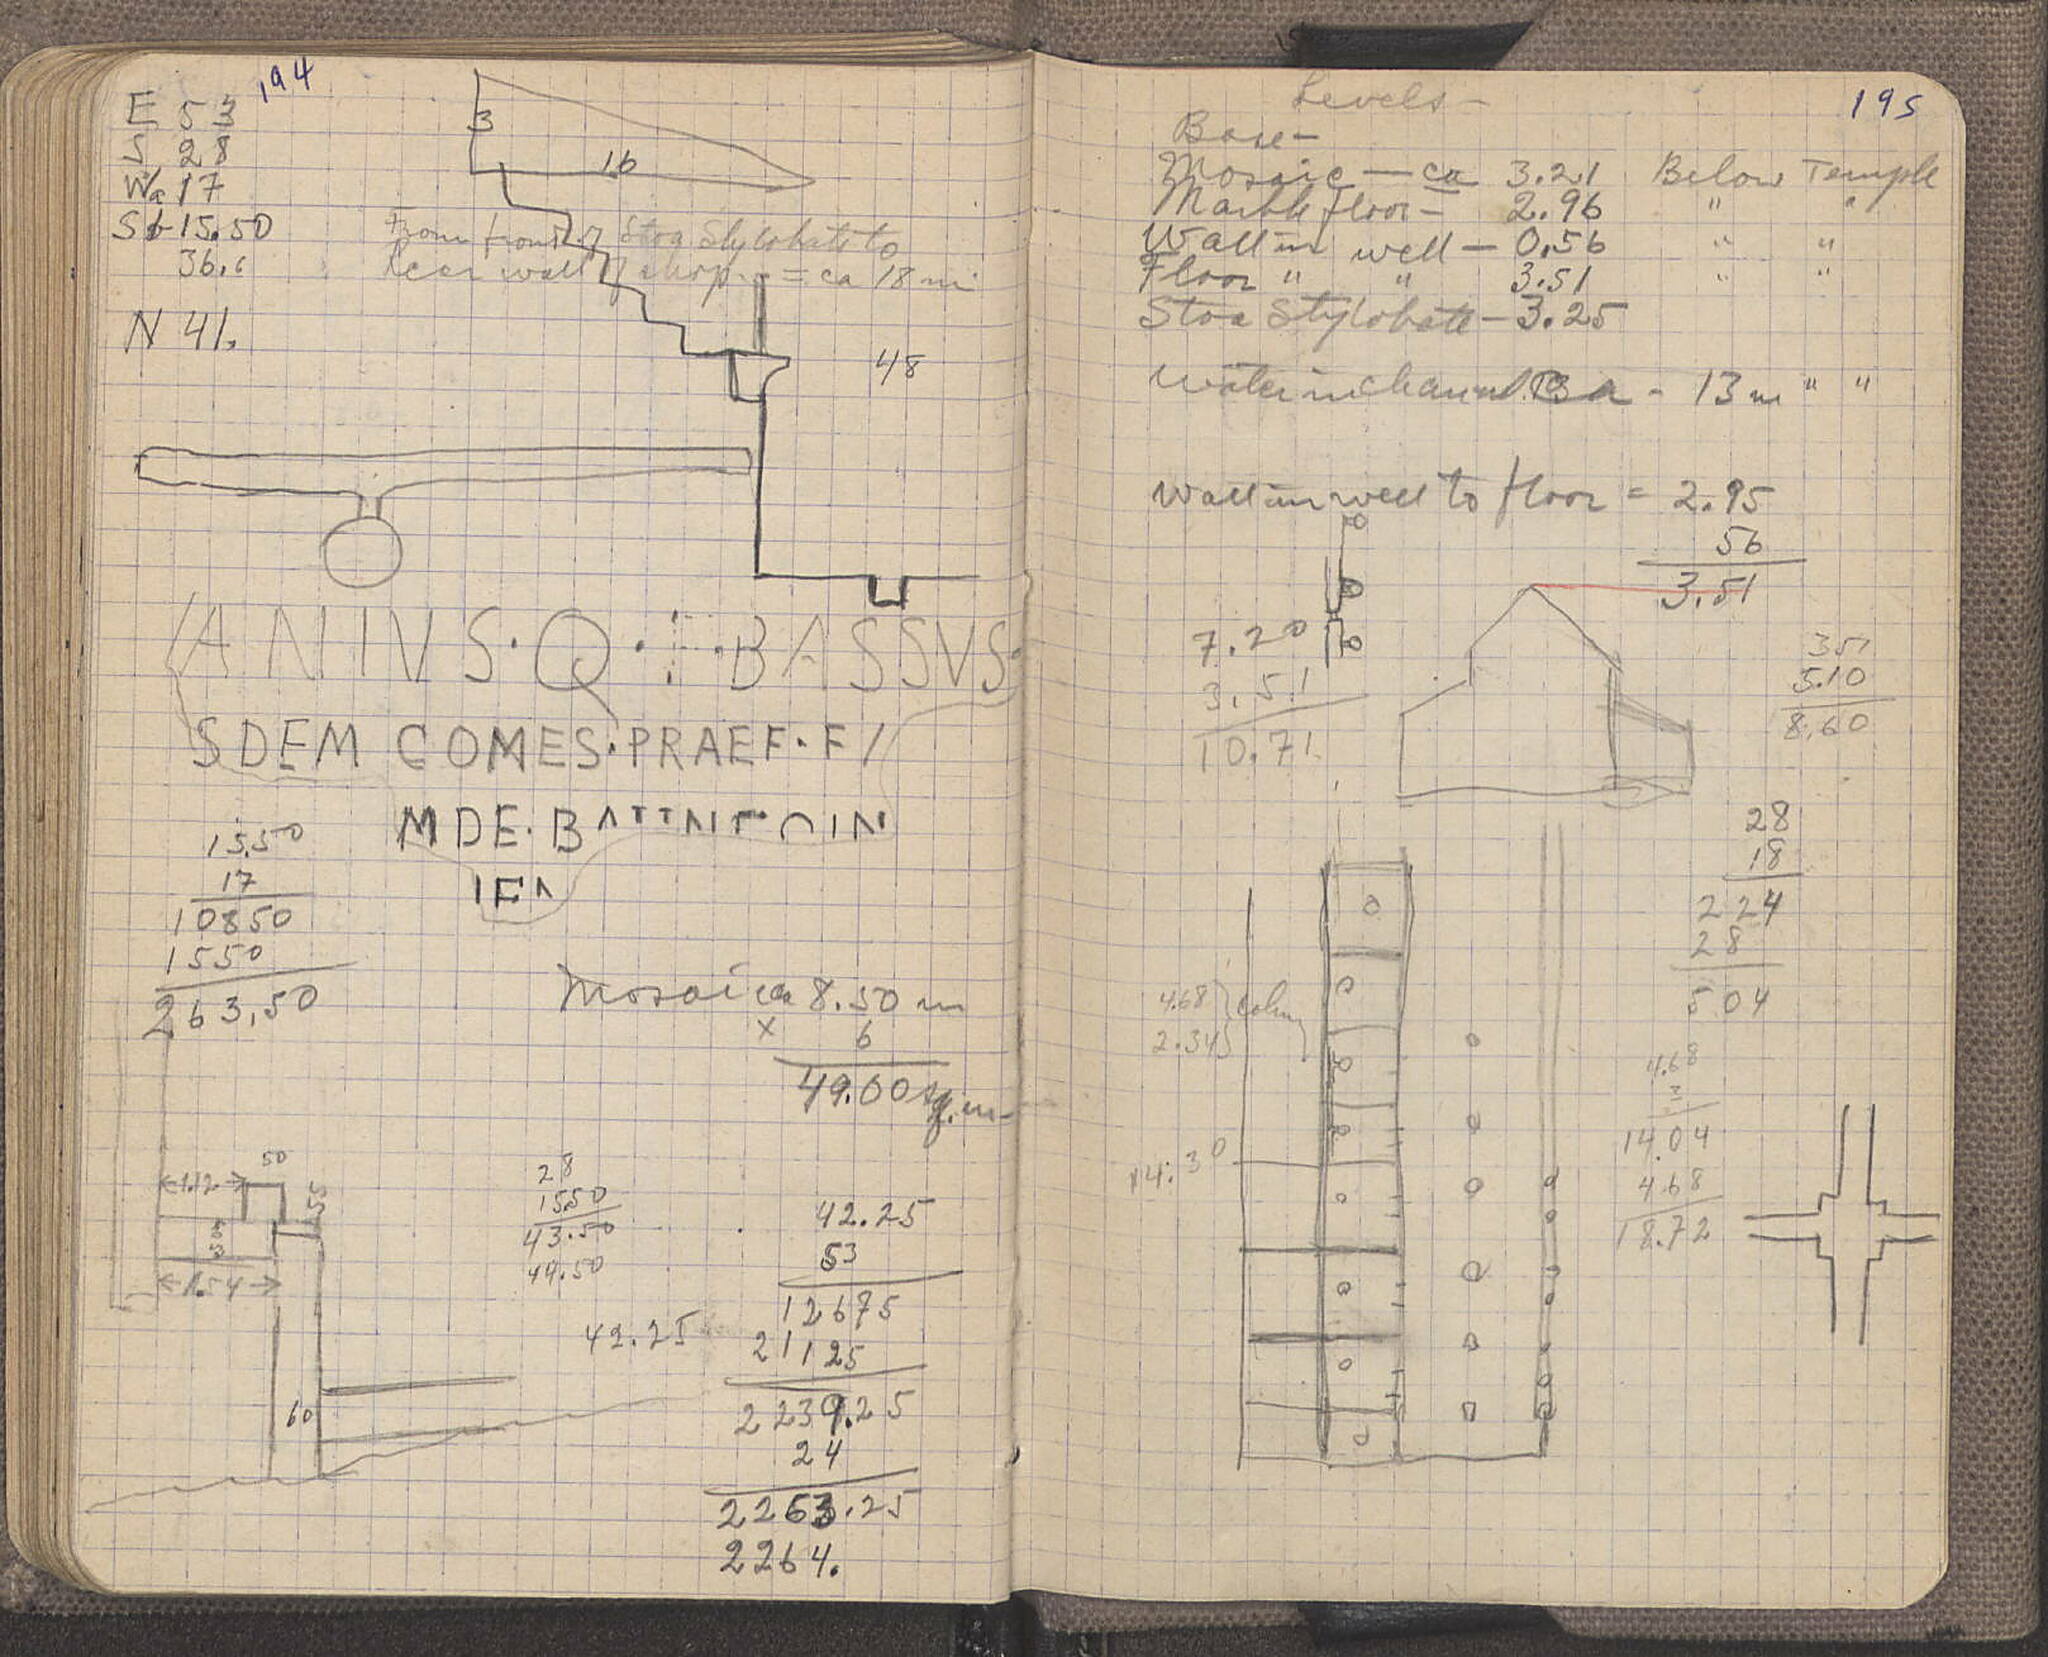 194
E 53
S 28
Wa 17
St 15.50
36.
N 41.
3
16
From front of Stoa Stylobate to
Rear wall of shop = ca 18 m
48
ANIVS·Q·F·BASSVS·
SDEM COMES·PRAEF·F
MDE·B
15.50
17
10850
1550
263,50
Mosaic ca 8.50 m
x 6
49.00 sq. m
1.12
50
55
1.54
60
28
15.50
43.50
44.50
42.25
42.25
53
12675
21125
2239.25
24
2263.25
2264.
195
Levels -
Base -
Mosaic — ca 3.21 Below Temple
Marble floor - 2.96 " "
Wall in well — 0.56 " "
Floor " " 3.51 " "
Stoa Stylobate - 3.25
Water in channel - 13 m " "
Wall in well to floor = 2.95
56
3.51
7.20
3.51
10.71
351
5.10
8.60
28
18
224
28
504
4.68
2.34
14.30
4.68
3
14.04
4.68
18.72